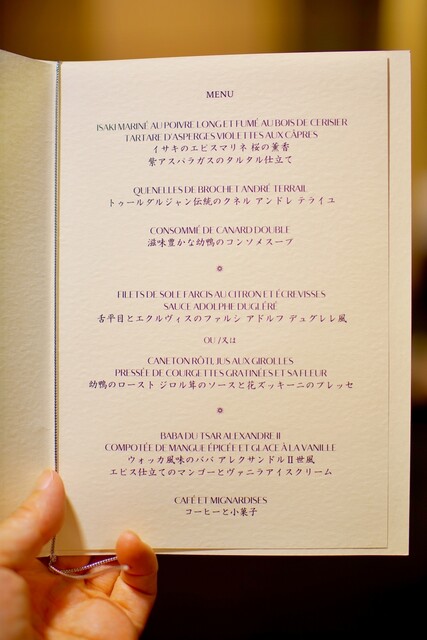 MENU
ISAKI MARINÉ AU POIVRE LONG ET FUMÉ AU BOIS DE CERISIER
TARTARE D'ASPERGES VIOLETTES AUX CÂPRES
イサキのエピスマリネ 桜の薫香
紫アスパラガスのタルタル仕立て
QUENELLES DE BROCHET ANDRÉ TERRAIL
トゥールダルジャン伝統のクネル アンドレ テライユ
CONSOMMÉ DE CANARD DOUBLE
滋味豊かな幼鴨のコンソメスープ
FILETS DE SOLE FARCIS AU CITRON ET ÉCREVISSES
SAUCE ADOLPHE DUGLÉRÉ
舌平目とエクルヴィスのファルシ アドルフ デュグレレ風
OU /又は
CANETON RÔTI, JUS AUX GIROLLES
PRESSÉE DE COURGETTES GRATINÉES ET SA FLEUR
幼鴨のロースト ジロル茸のソースと花ズッキーニのプレッセ
BABA DU TSAR ALEXANDRE II
COMPOTÉE DE MANGUE ÉPICÉE ET GLACE À LA VANILLE
ウォッカ風味のババ アレクサンドルⅡ世風
エピス仕立てのマンゴーとヴァニラアイスクリーム
CAFÉ ET MIGNARDISES
コーヒーと小菓子